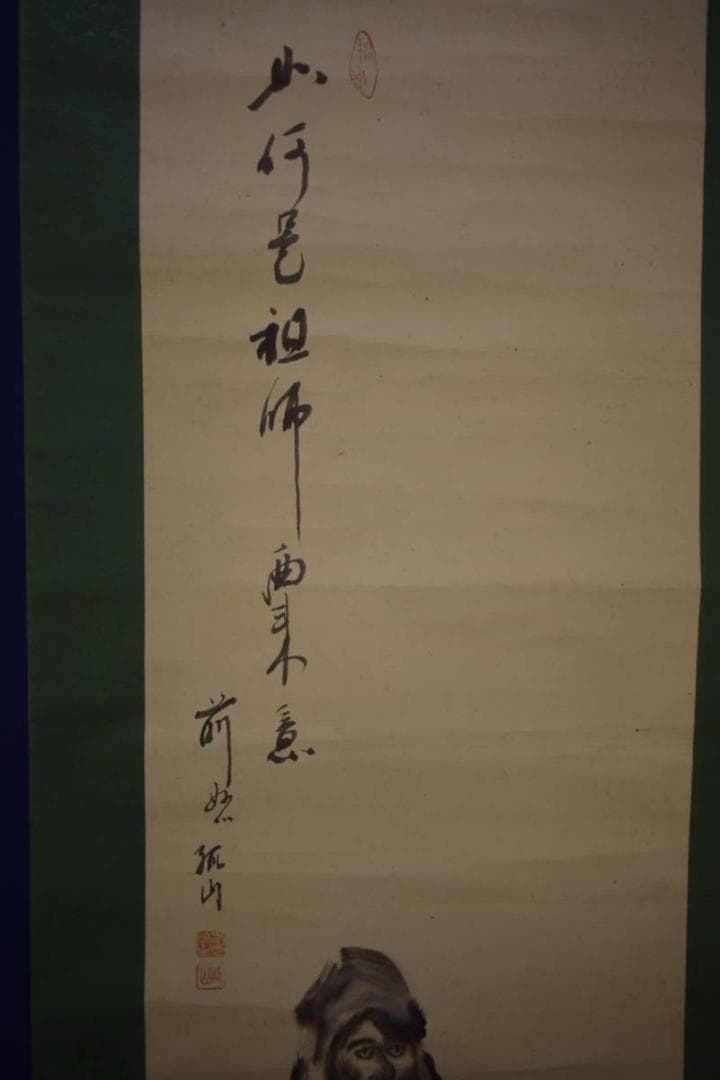 如何是祖師西来意
前妙心孤山